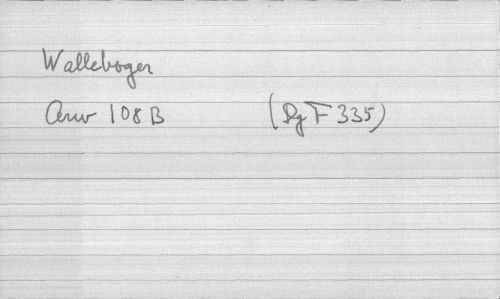 Walleboger
Anw 108 B (Dg F 335)